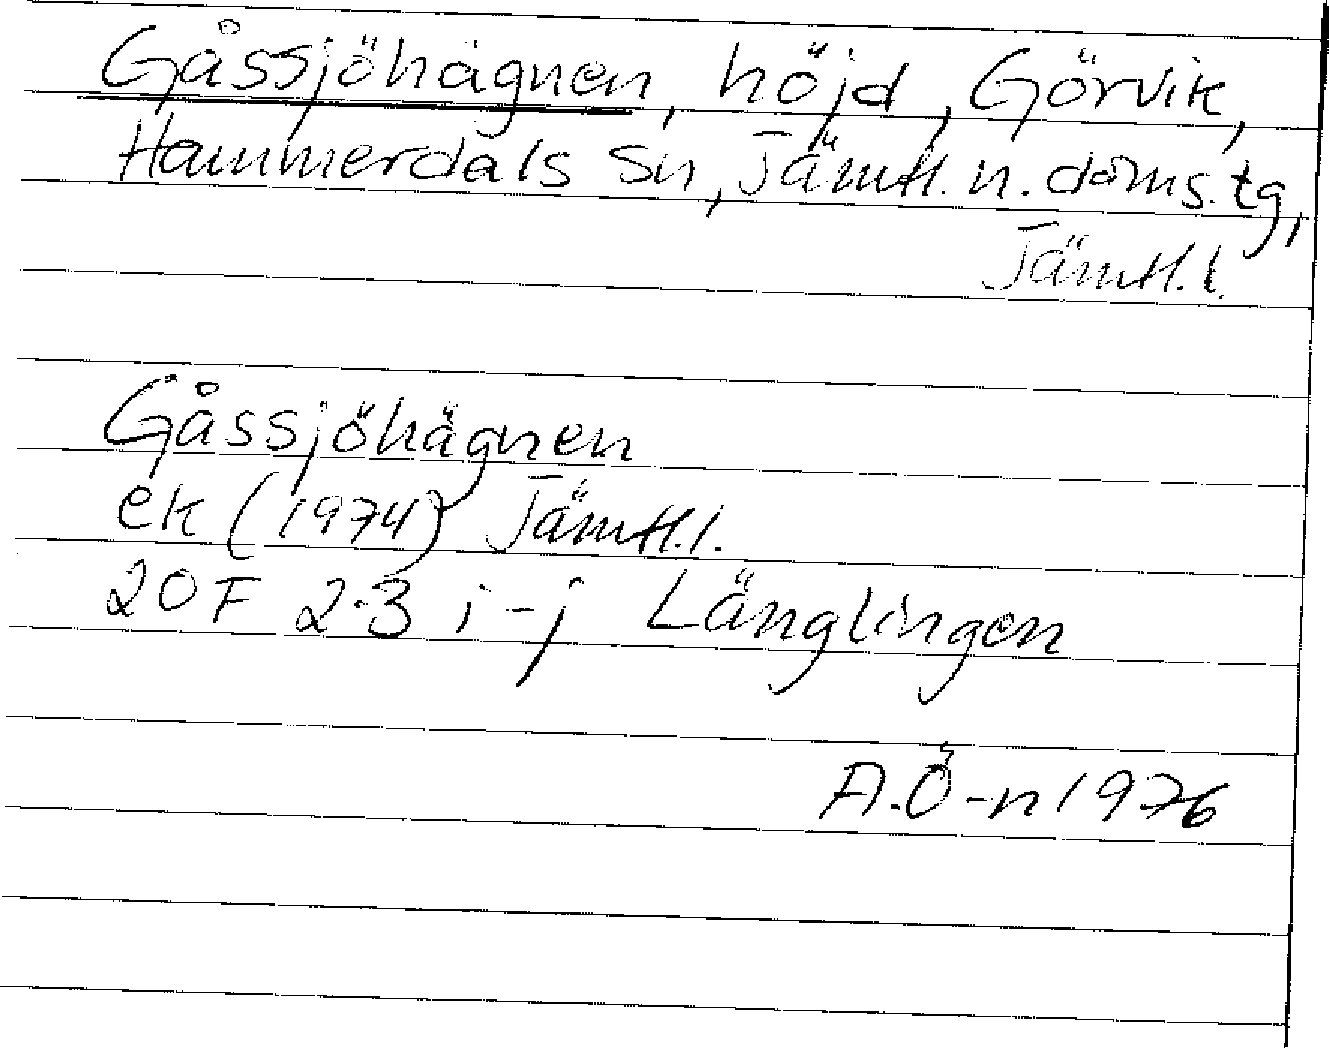 Gåssjöhägnen, höjd, Görvik,
Hammerdals sn, Jämtl. n. doms.tg,
Jämtl. l.
Gåssjöhägnen
ek (1974) Jämtl. l.
20F 2-3 i-j Länglingen
A.Ö-n 1976